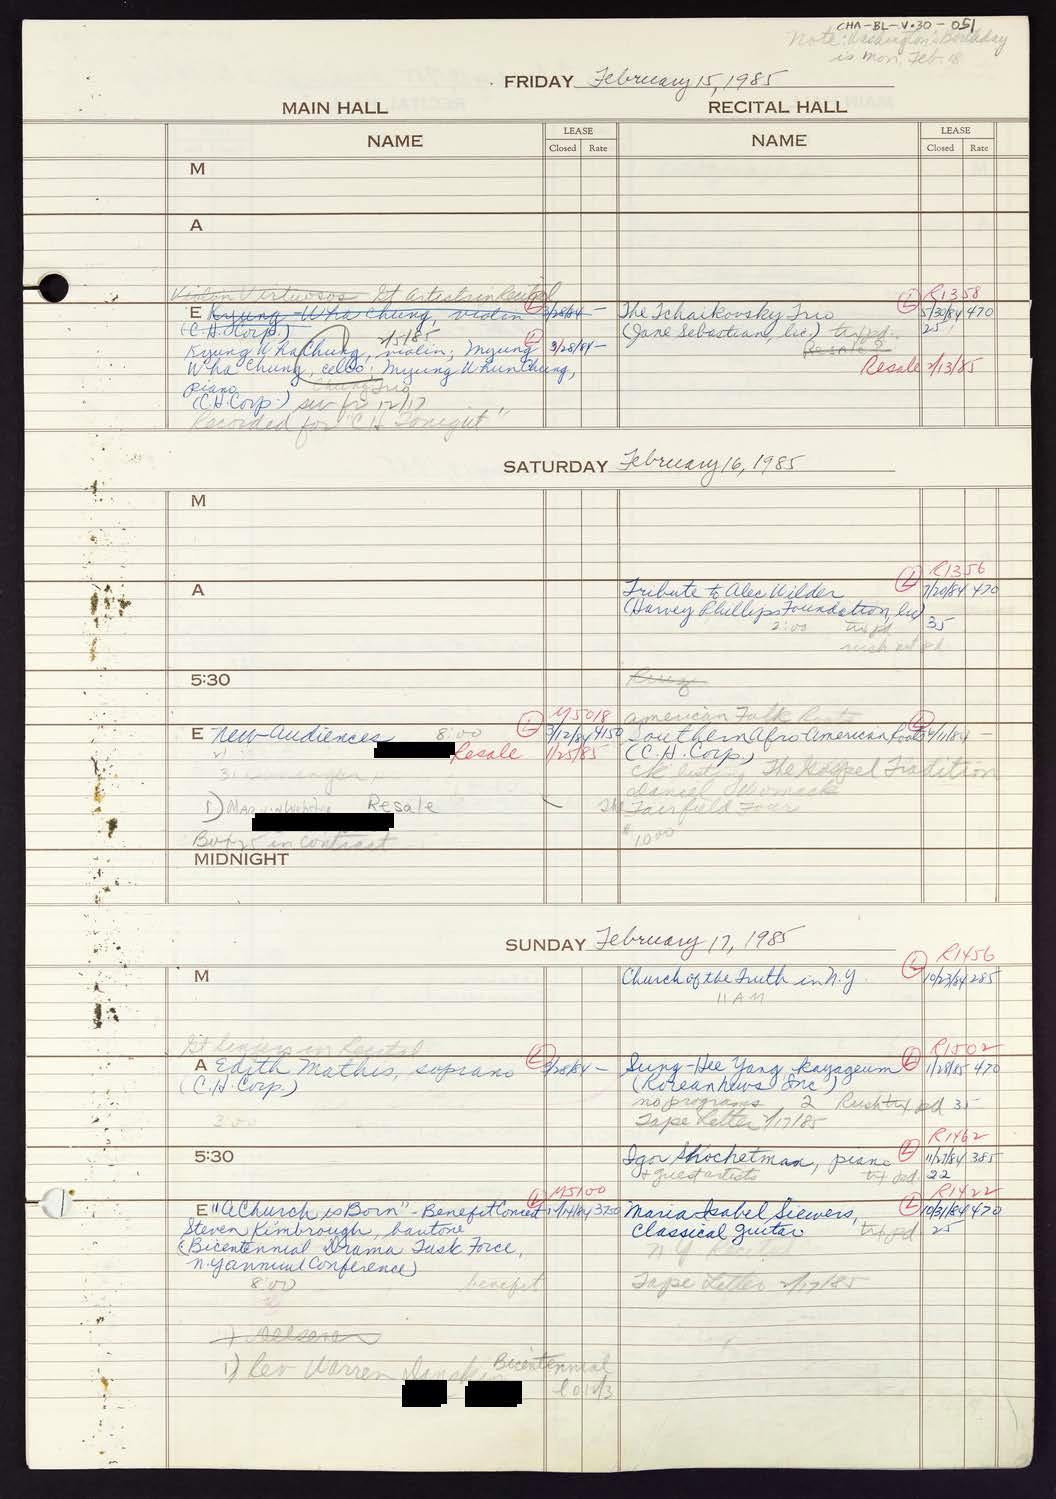 CHA-BL-V.30-051
Note: Washington's Birthday
is Mon, Feb. 18
FRIDAY February 15, 1985
MAIN HALL
RECITAL HALL
NAME
LEASE
Closed
Rate
NAME
LEASE
Closed
Rate
M
A
Violin Virtuosos Gt Artists in Recital
E Kyung-Wha Chung, violin
(C.H. Corp.)
L 3/28/84 —
2/5/85
Kyung Wha Chung, violin; Myung
L 3/28/84 —
Wha Chung, cello; Myung Whun Chung,
piano
Chung Trio
(C.H. Corp.)
12/17
Recorded for "CH Tonight"
L R1358
The Tchaikovsky Trio
5/30/84 470
(Jane Sebastian, Inc.)
25
Resale 2/13/85
SATURDAY February 16, 1985
M
A
L R1356
Tribute to Alec Wilder
7/20/84 470
(Harvey Phillips Foundation, Inc)
35
2:00
5:30
E New Audiences 8:00
L M5018
3/12/84 4150
Resale 1/25/85
1) Resale
Box 25 in contract
American Folk Roots
Southern Afro American Roots
L 4/11/84 —
(C.H. Corp.)
ck listing The Gospel Tradition
Daniel Womack
The Fairfield Four
$10.00
MIDNIGHT
SUNDAY February 17, 1985
M
L R1456
Church of the Truth in N.Y.
10/23/84 285
11 AM
Gt Singers in Recital
A Edith Mathis, soprano
L 3/28/84 —
(C.H. Corp.)
3:00
L R1502
Sung-Hee Yang, kayageum
1/28/85 470
(Koreanews Inc)
no programs 2 Rush txf pd 35
Tape Letter 2/17/85
5:30
L R1462
Igor Shochetman, piano
11/27/84 385
+ guest artists
22
E "A Church is Born" - Benefit Concert
L M5100
Steven Kimbrough, baritone
(Bicentennial Drama Task Force,
N.Y. Annual Conference)
8:00
benefit
L R1422
Maria Isabel Siewers,
10/31/84 470
Classical guitar
25
NY Recital
Tape Letter 2/17/85
1) Rev Warren
Bicentennial